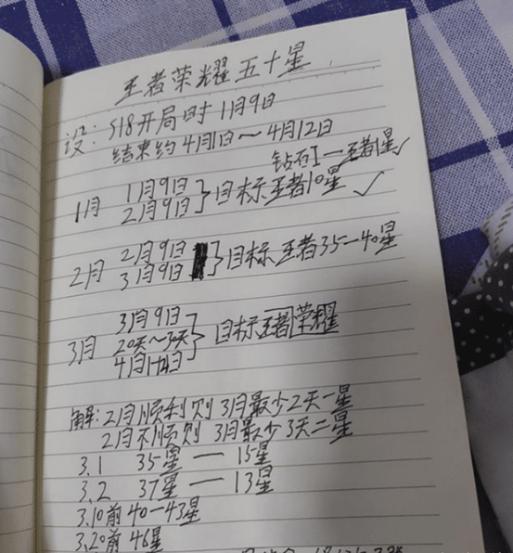 王者荣耀五十星
设: S18开局时1月9日
结束约4月1日～4月12日
钻石I—王者1星✓
1月 1月9日
2月9日 }目标王者10星 ✓
2月 2月9日
3月9日 }目标王者35—40星
3月 3月9日
20天～30天
4月1-12日 }目标王者荣耀
解: 2月顺利则3月最少2天一星
2月不顺则3月最少3天二星
3.1 35星 — 15星
3.2 37星 — 13星
3.10前 40—43星
3.20前 46星